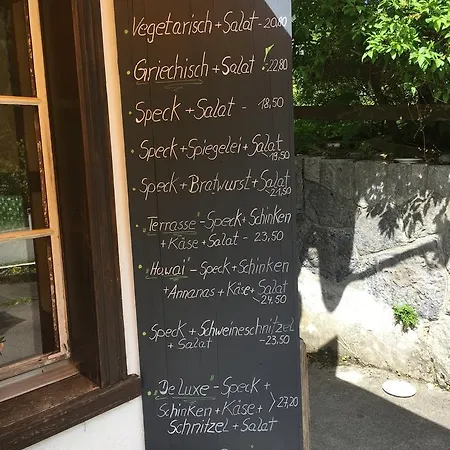 Vegetarisch + Salat - 20.80
Griechisch + Salat - 22,80
Speck + Salat - 18,50
Speck + Spiegelei + Salat
- 19,50
Speck + Bratwurst + Salat
- 21,50
"Terrasse" - Speck + Schinken
+ Käse + Salat - 23,50
"Hawai" - Speck + Schinken
+ Annanas + Käse + Salat
- 24,50
Speck + Schweineschnitzel
+ Salat - 23,50
"De Luxe" - Speck +
Schinken + Käse + > 27,20
Schnitzel + Salat